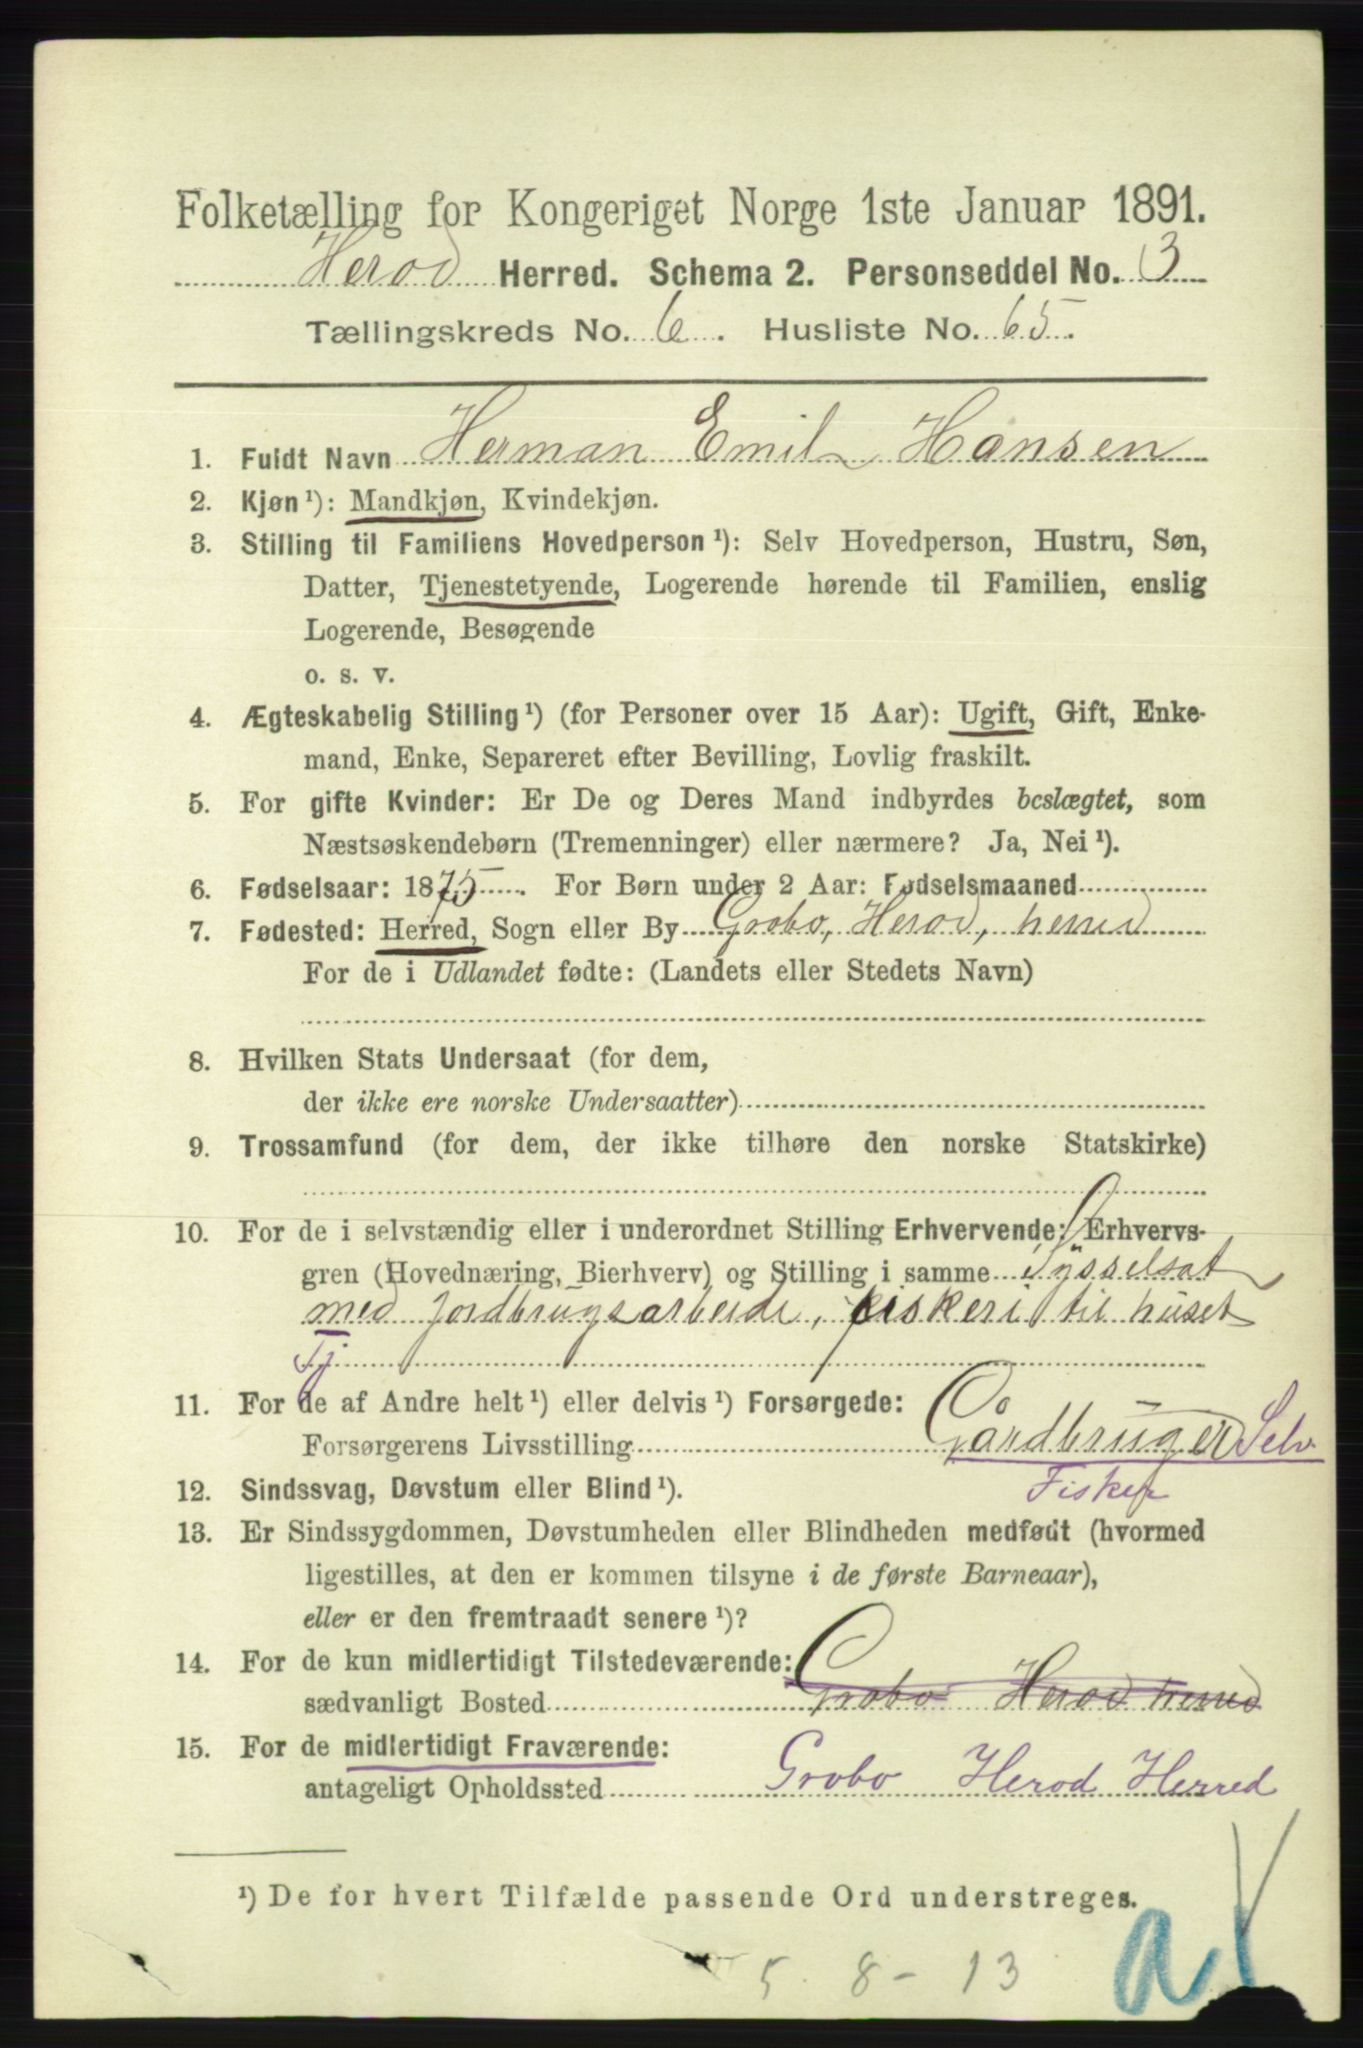 Folketælling for Kongeriget Norge 1ste Januar 1891.
Herod Herred. Schema 2. Personseddel No. 3
Tællingskreds No. 6. Husliste No. 65.
1. Fuldt Navn Herman Emil Hansen
2. Kjøn ¹): Mandkjøn, Kvindekjøn.
3. Stilling til Familiens Hovedperson ¹): Selv Hovedperson, Hustru, Søn,
Datter, Tjenestetyende, Logerende hørende til Familien, enslig
Logerende, Besøgende
o. s. v.
4. Ægteskabelig Stilling ¹) (for Personer over 15 Aar): Ugift, Gift, Enke-
mand, Enke, Separeret efter Bevilling, Lovlig fraskilt.
5. For gifte Kvinder: Er De og Deres Mand indbyrdes beslægtet, som
Næstsøskendebørn (Tremenninger) eller nærmere? Ja, Nei ¹).
6. Fødselsaar: 1875. For Børn under 2 Aar: Fødselsmaaned
7. Fødested: Herred, Sogn eller By Grobo, Herod, herred
For de i Udlandet fødte: (Landets eller Stedets Navn)
8. Hvilken Stats Undersaat (for dem,
der ikke ere norske Undersaatter)
9. Trossamfund (for dem, der ikke tilhøre den norske Statskirke)
10. For de i selvstændig eller i underordnet Stilling Erhvervende: Erhvervs-
gren (Hovednæring, Bierhverv) og Stilling i samme Sysselsat
med jordbrugsarbeide, fiskeri til huset
Tj
11. For de af Andre helt ¹) eller delvis ¹) Forsørgede:
Forsørgerens Livsstilling Gårdbruger Selv
Fisker
12. Sindssvag, Døvstum eller Blind ¹).
13. Er Sindssygdommen, Døvstumheden eller Blindheden medfødt (hvormed
ligestilles, at den er kommen tilsyne i de første Barneaar),
eller er den fremtraadt senere ¹)?
14. For de kun midlertidigt Tilstedeværende:
sædvanligt Bosted Grobo Herod herred
15. For de midlertidigt Fraværende:
antageligt Opholdssted Grobo Herod Herred
¹) De for hvert Tilfælde passende Ord understreges.
5 8 - 13